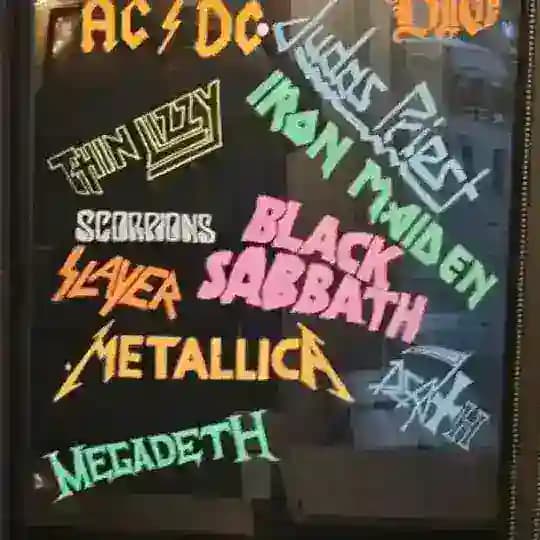 AC/DC
Dio
Judas Priest
THIN LIZZY
IRON MAIDEN
SCORPIONS
BLACK
SABBATH
SLAYER
METALLICA
DEATH
MEGADETH